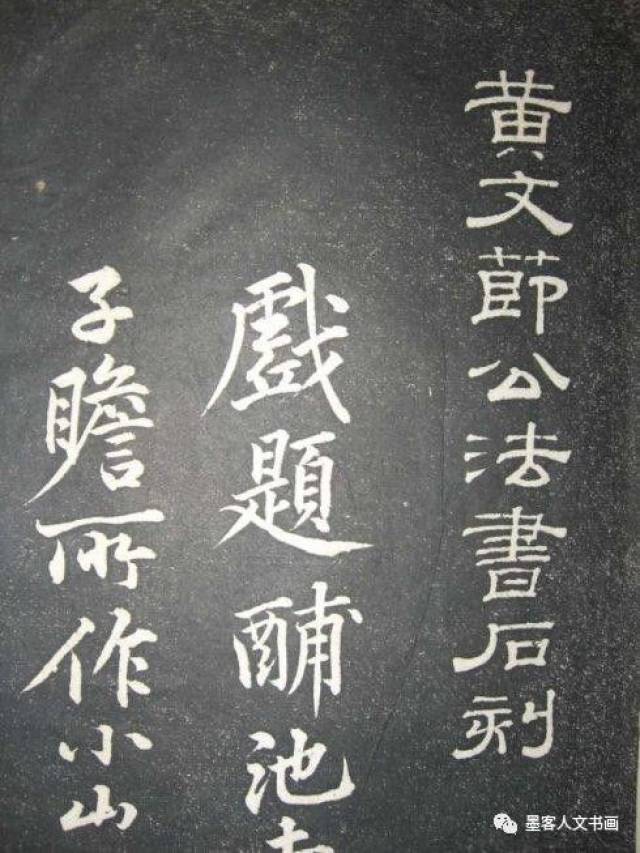 黄文節公法書石刻
戲題酺池
子瞻所作小山
墨客人文书画